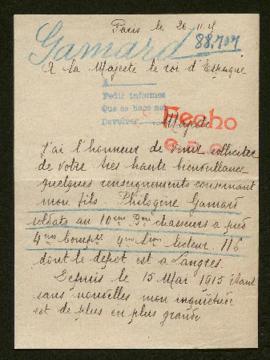 Paris le 26
Gamard 88.707
A Sa Majesté le roi d'Espagne
A
Pedir informes
Que se haga saber
Devolver
Fecho
Majesté
J'ai l'honneur de venir solliciter
de votre très haute bienveillance
quelques renseignements concernant
mon fils Philogène Gamard
soldats au 10ème chasseurs à pied
4me Compie secteur 116
dont le dépot est à Langres
Depuis le 15 Mai 1915 étant
sans nouvelles mon inquiétude
est de plus en plus grande